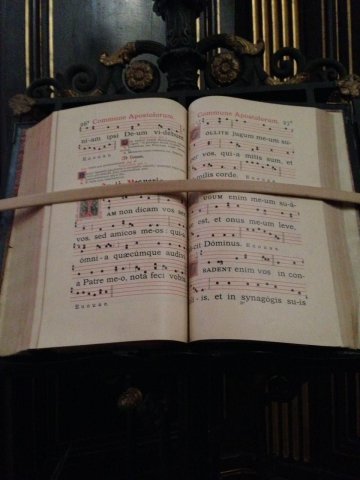 26* Commune Apostolorum.
ni-am ipsi De-um vi-débunt.
E u o u a e
AM non dicam vos ser-
vos, sed amícos me-os: qui-a
ómni-a quæcúmque audívi
a Patre me-o, nota feci vobis.
E u o u a e
Commune Apostolorum. 27*
OLLITE jugum me-um su-
per vos, qui-a mitis sum, et
humilis corde. E u o u a e
UGUM enim me-um su-á-
ve est, et onus me-um leve,
dicit Dóminus. E u o u a e
RADENT enim vos in con-
cíli-is, et in synagógis su-is